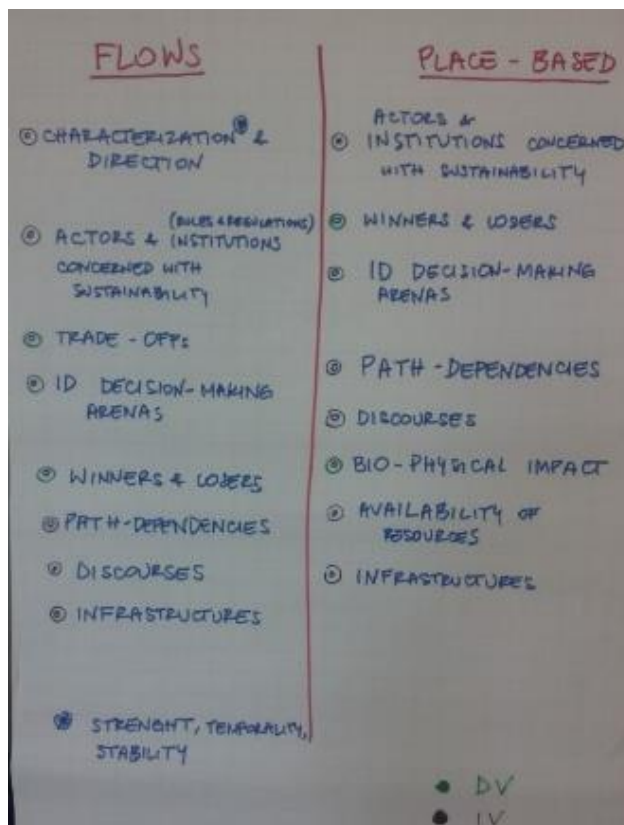 FLOWS
CHARACTERIZATION &
DIRECTION
(RULES & REGULATIONS)
ACTORS & INSTITUTIONS
CONCERNED WITH
SUSTAINABILITY
TRADE - OFFS
ID DECISION-MAKING
ARENAS
WINNERS & LOSERS
PATH-DEPENDENCIES
DISCOURSES
INFRASTRUCTURES
STRENGHT, TEMPORALITY,
STABILITY
PLACE - BASED
ACTORS &
INSTITUTIONS CONCERNED
WITH SUSTAINABILITY
WINNERS & LOSERS
ID DECISION-MAKING
ARENAS
PATH-DEPENDENCIES
DISCOURSES
BIO-PHYSICAL IMPACT
AVAILABILITY OF
RESOURCES
INFRASTRUCTURES
DV
IV